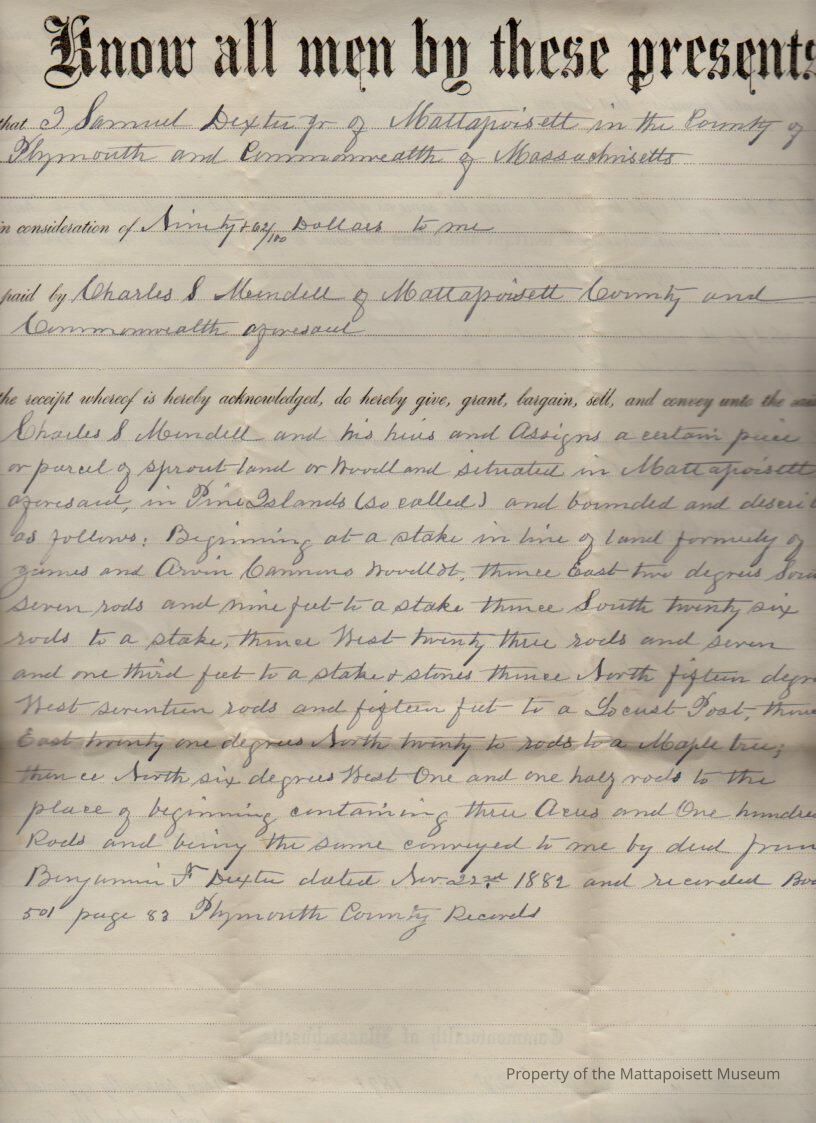 Know all men by these presents
that I Samuel Dexter Jr of Mattapoisett in the County of
Plymouth and Commonwealth of Massachusetts
in consideration of Ninety & 62/100 Dollars to me
paid by Charles S Mendell of Mattapoisett County and
Commonwealth aforesaid
the receipt whereof is hereby acknowledged, do hereby give, grant, bargain, sell, and convey unto the said
Charles S Mendell and his heirs and Assigns a certain piece
or parcel of sprout land or Woodland situated in Mattapoisett
aforesaid, in Pine Islands (so called) and bounded and descri
as follows: Beginning at a stake in line of land formerly of
James and Arvin Cannons Woodlot, thence East two degrees Sou
seven rods and nine feet to a stake thence South twenty six
rods to a stake, thence West twenty three rods and seven
and one third feet to a stake & stones thence North fifteen degre
West seventeen rods and fifteen feet to a Locust Post, thence
East twenty one degrees North twenty to rods to a Maple tree;
thence North six degrees West One and one half rods to the
place of beginning containing three Acres and One hundred
Rods and being the same conveyed to me by deed from
Benjamin F Dexter dated Nov 22nd 1882 and recorded Boo
501 page 83 Plymouth County Records
Commonwealth of Massachusetts
Property of the Mattapoisett Museum